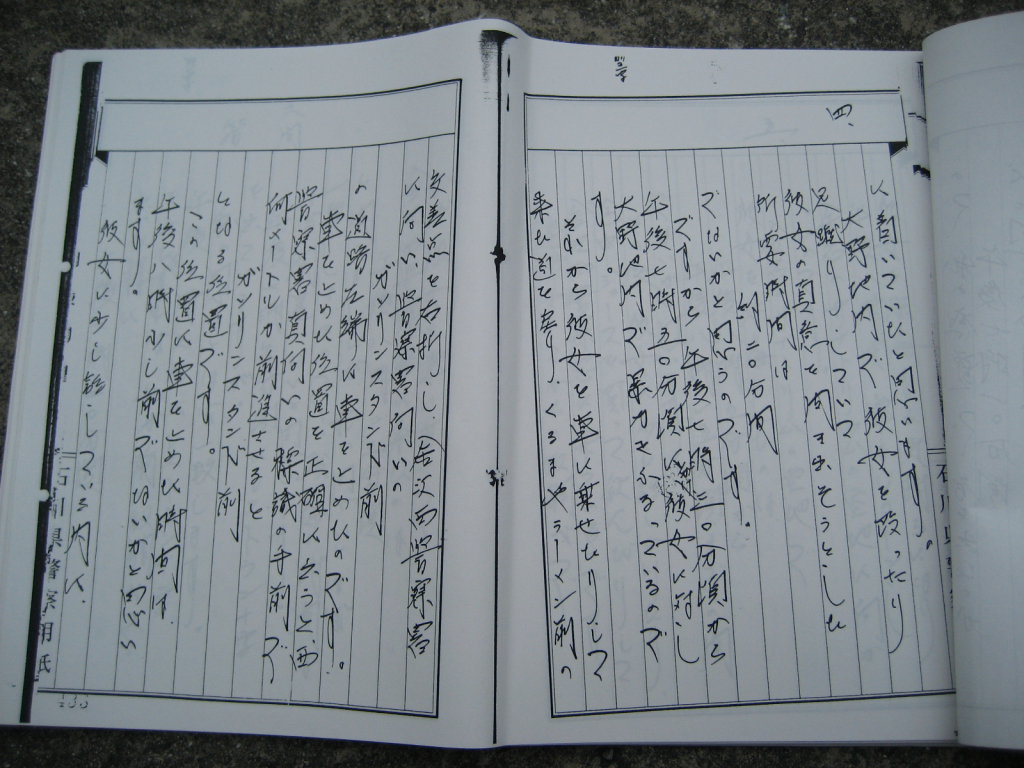 四、
に着いていたと思います。
大野地内で彼女を殴ったり
足蹴りしていて
彼女の真意を聞き出そうとした
所要時間は
約二〇分間
でないかと思うのです。
ですから午後七時三〇分頃から
午後七時五〇分頃に彼女に対し
大野地内で暴力をふるっているので
す。
それから彼女を車に乗せたりして
来た道を戻り、くるまやラーメン前の
交差点を右折し、金沢西警察署
に向い、警察署向いの
ガソリンスタンド前
の道路左端に車をとめたのです。
車をとめた位置を正確に言うと、西
警察署真向いの標識の手前で
何メートルか前進させると
ガソリンスタンド前
となる位置です。
この位置に車をとめた時間は
午後八時少し前でないかと思い
ます。
彼女に少し話している内に、
石川県警察用紙